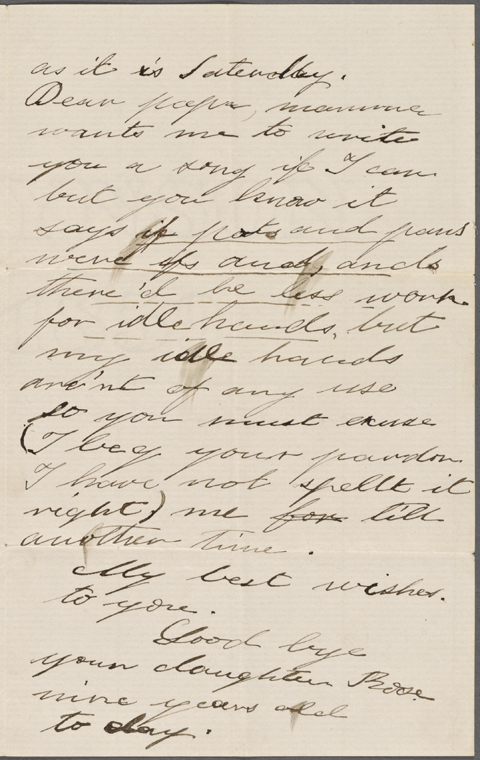 as it is Saterday.
Dear papa, mamma
wants me to write
you a song if I can
but you know it
says if pots and pans
were ifs and, ands
there'd be less work
for idle hands, but
my idle hands
are'nt of any use
so you must excuse
(I beg your pardon
I have not spellt it
right) me for till
another time.
My best wishes.
to you.
Good bye
your daughter Rose
nine years old
to day.